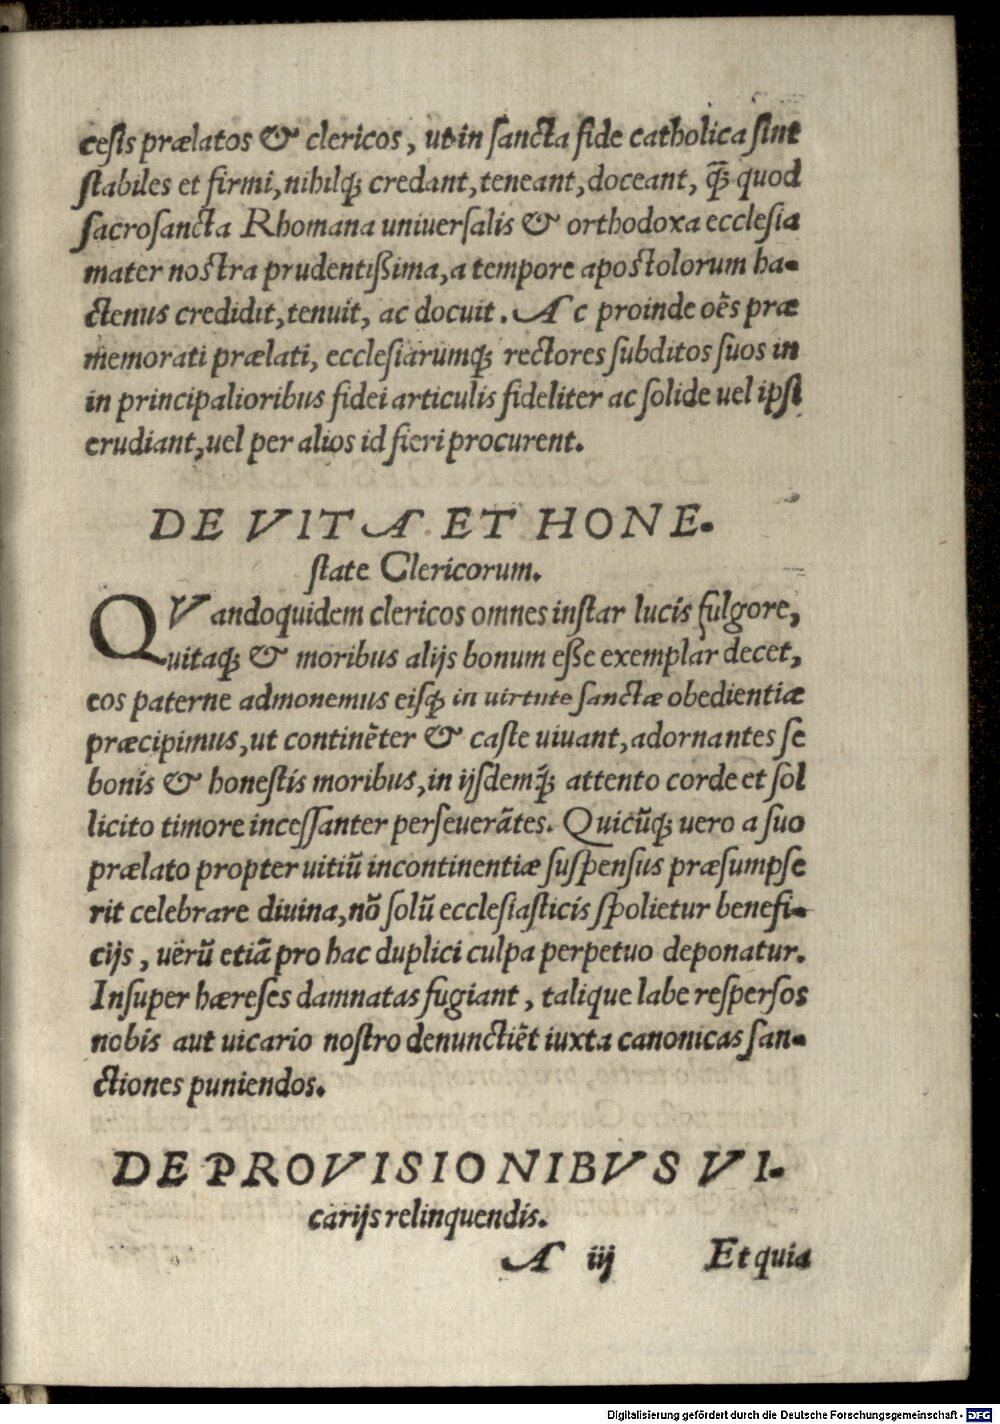 cesis prælatos & clericos, ut in sancta fide catholica sint
stabiles et firmi, nihilq; credant, teneant, doceant, q̃; quod
sacrosancta Rhomana uniuersalis & orthodoxa ecclesia
mater nostra prudentißima, a tempore apostolorum ha-
ctenus credidit, tenuit, ac docuit. Ac proinde oẽs præ
memorati prælati, ecclesiarumq; rectores subditos suos in
in principalioribus fidei articulis fideliter ac solide uel ipsi
erudiant, uel per alios id fieri procurent.
DE VITA ET HONE-
state Clericorum.
QVandoquidem clericos omnes instar lucis fulgore,
uitaq; & moribus alijs bonum eße exemplar decet,
eos paterne admonemus eisq; in uirtute sanctæ obedientiæ
præcipimus, ut continẽter & caste uiuant, adornantes se
bonis & honestis moribus, in ijsdemq̃; attento corde et sol
licito timore incessanter perseuerãtes. Quicũq; uero a suo
prælato propter uitiũ incontinentiæ suspensus præsumpse
rit celebrare diuina, nõ solũ ecclesiasticis spolietur benefi-
cijs, uerũ etiã pro hac duplici culpa perpetuo deponatur.
Insuper hæreses damnatas fugiant, talique labe respersos
nobis aut uicario nostro denunctiẽt iuxta canonicas san-
ctiones puniendos.
DE PROVISIONIBVS VI-
carijs relinquendis.
A iij Et quia
Digitalisierung gefördert durch die Deutsche Forschungsgemeinschaft - DFG